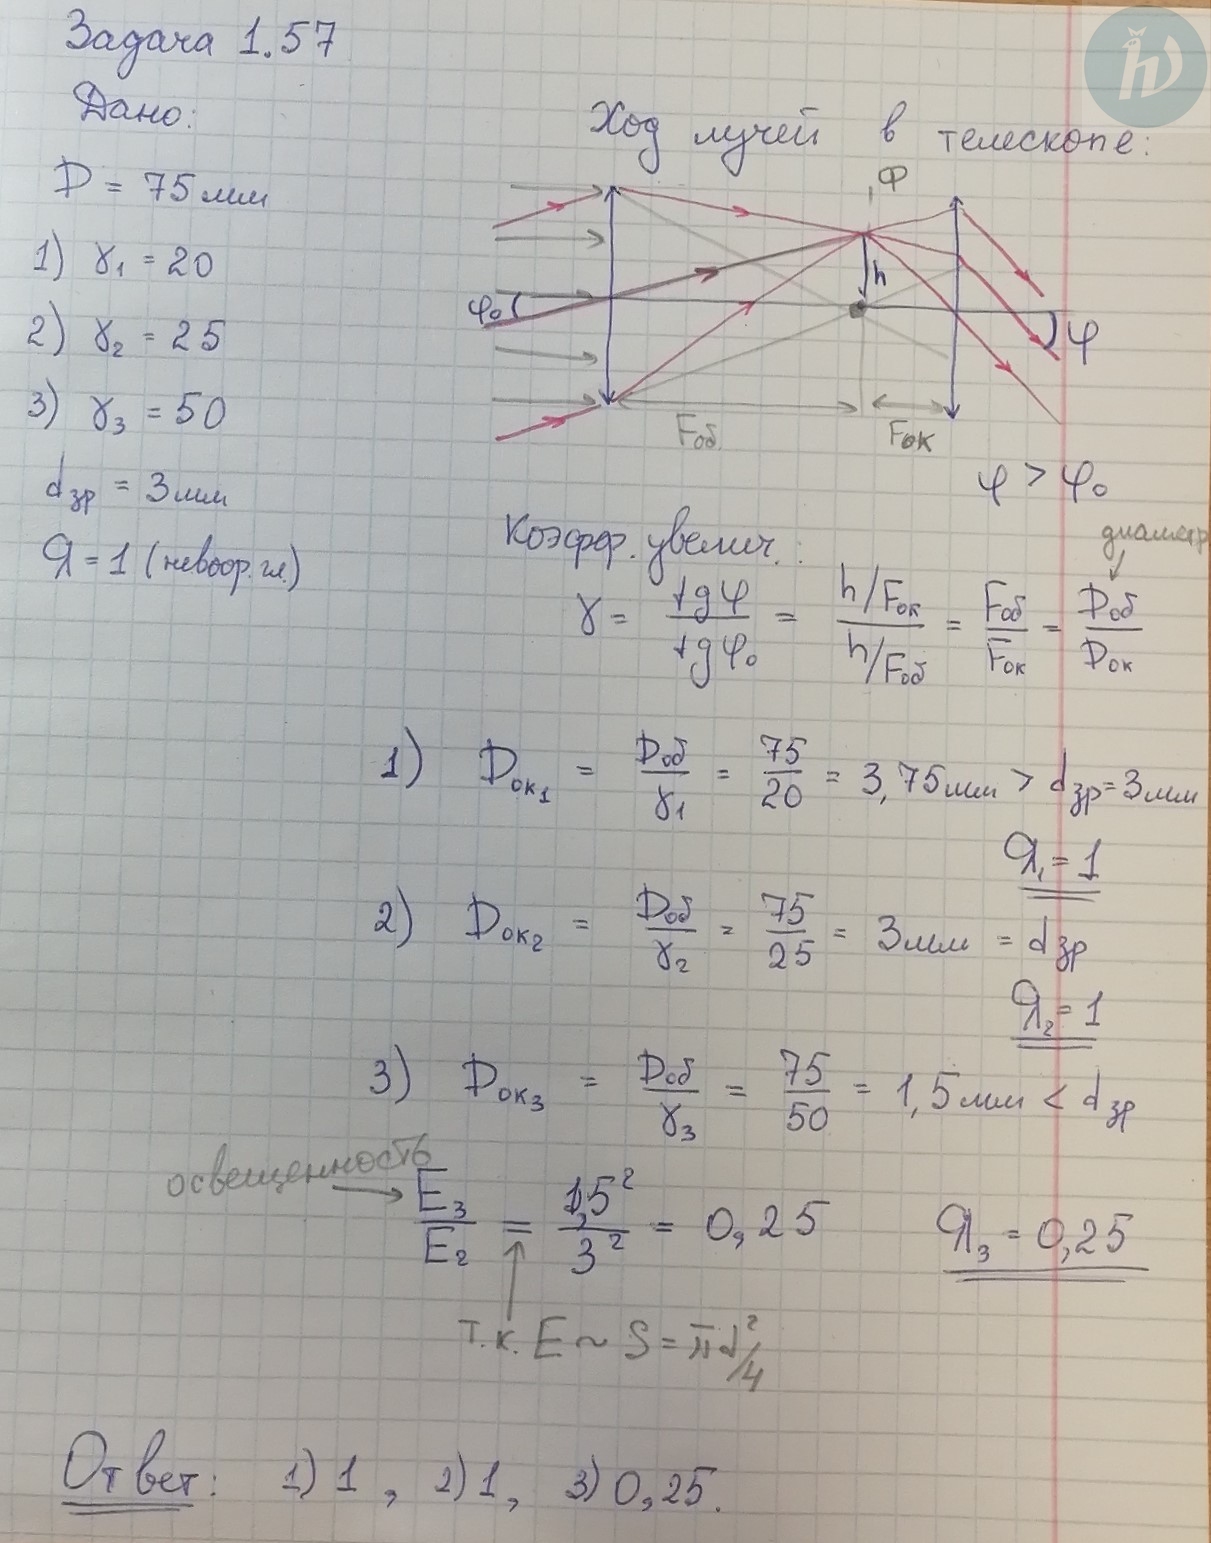 Задача 1.57
Дано:
D = 75 мм
1) γ₁ = 20
2) γ₂ = 25
3) γ₃ = 50
dзр = 3 мм
Я = 1 (невоор. гл.)
Ход лучей в телескопе:
Ф
h
φ₀
φ
Fоб
Fок
φ > φ₀
Коэфф. увелич.:
диаметр
γ = tgφ / tgφ₀ = (h/Fок) / (h/Fоб) = Fоб / Fок = Dоб / Dок
1) Dок₁ = Dоб / γ₁ = 75 / 20 = 3,75 мм > dзр = 3 мм
Я₁ = 1
2) Dок₂ = Dоб / γ₂ = 75 / 25 = 3 мм = dзр
Я₂ = 1
3) Dок₃ = Dоб / γ₃ = 75 / 50 = 1,5 мм < dзр
освещенность
E₃ / E₂ = 1,5² / 3² = 0,25
Я₃ = 0,25
т.к. E ~ S = πd²/4
Ответ: 1) 1, 2) 1, 3) 0,25.